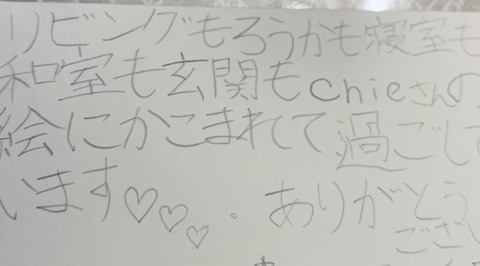 リビングもろうかも寝室も
和室も玄関もchieさんの
絵にかこまれてて過ごして
います♡♡♡．ありがとう
ござい